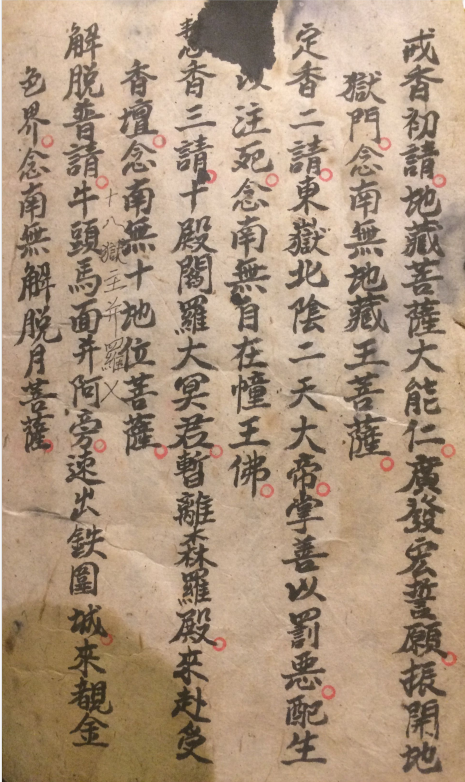 戒香初請地藏菩薩大能仁廣發宏誓願振開地
獄門念南無地藏王菩薩
定香二請東嶽北陰二天大帝掌善以罰惡配生
以注死念南無自在幢王佛
慧香三請十殿閻羅大冥君暫離森羅殿来赴受
香壇念南無十地位菩薩
十八獄主并羅乂
解脱普請牛頭馬面并阿旁速出鉄圍城来覩金
色界念南無解脱月菩薩